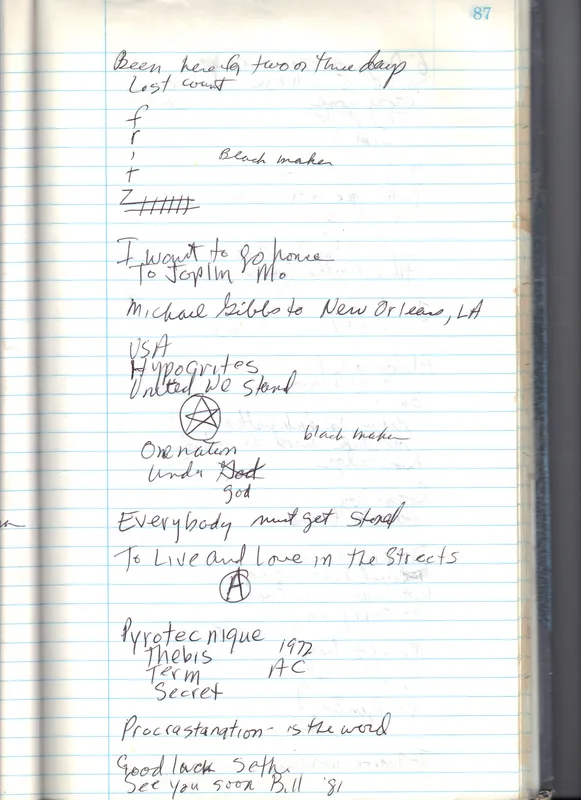 87
Been here for two or three days
Lost count
f
r
i
t
z
Black maker
I want to go home
To Joplin Mo
Michael Gibbs to New Orleans, LA
USA
Hypogrites
United we stand
black maker
One nation
Under God
god
Everybody must get stoned
To Live and Love in the Streets
A
Pyrotecnique 1972
Thebis AC
Term
Secret
Procrastanation - is the word
Good luck Seth
See you soon Bill '81